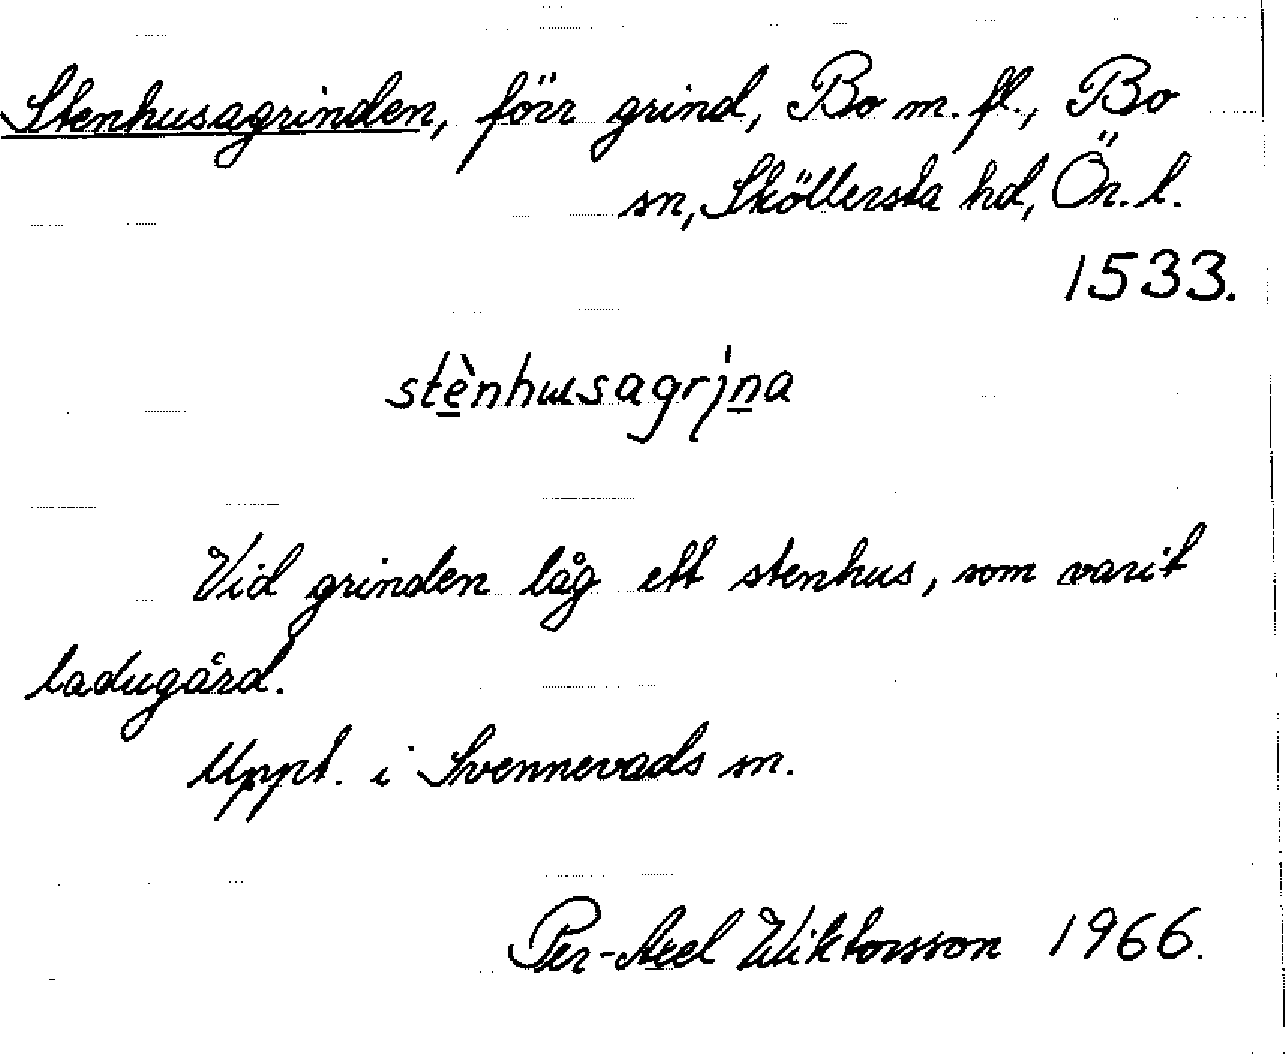 Stenhusagrinden, förr grind, Bo m. fl., Bo
sn, Sköllersta hd, Ör. l.
1533.
stènhusagrịna
Vid grinden låg ett stenhus, som varit
ladugård.
Uppt. i Svennevads sn.
Per-Axel Wiktorsson 1966.